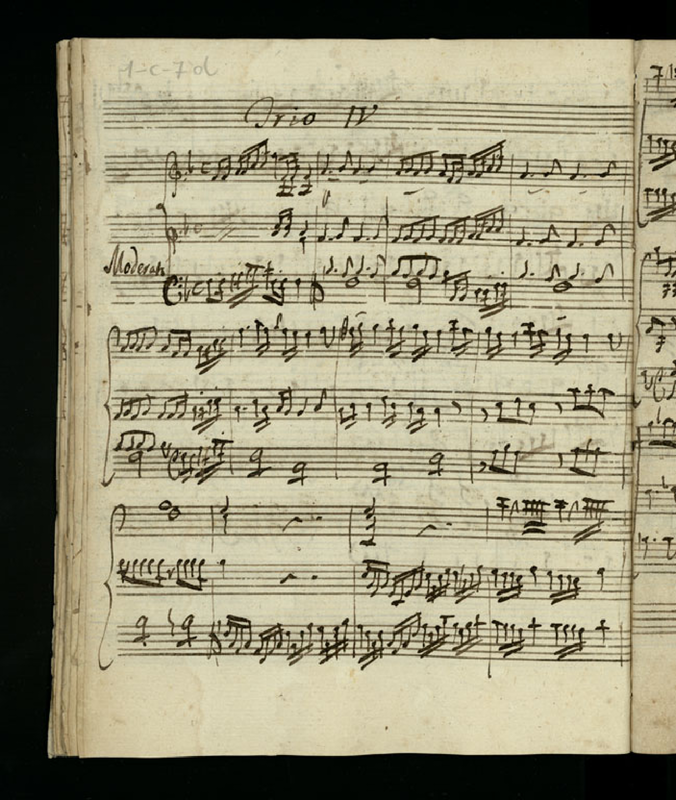 1-c-7d
Trio IV
Moderato